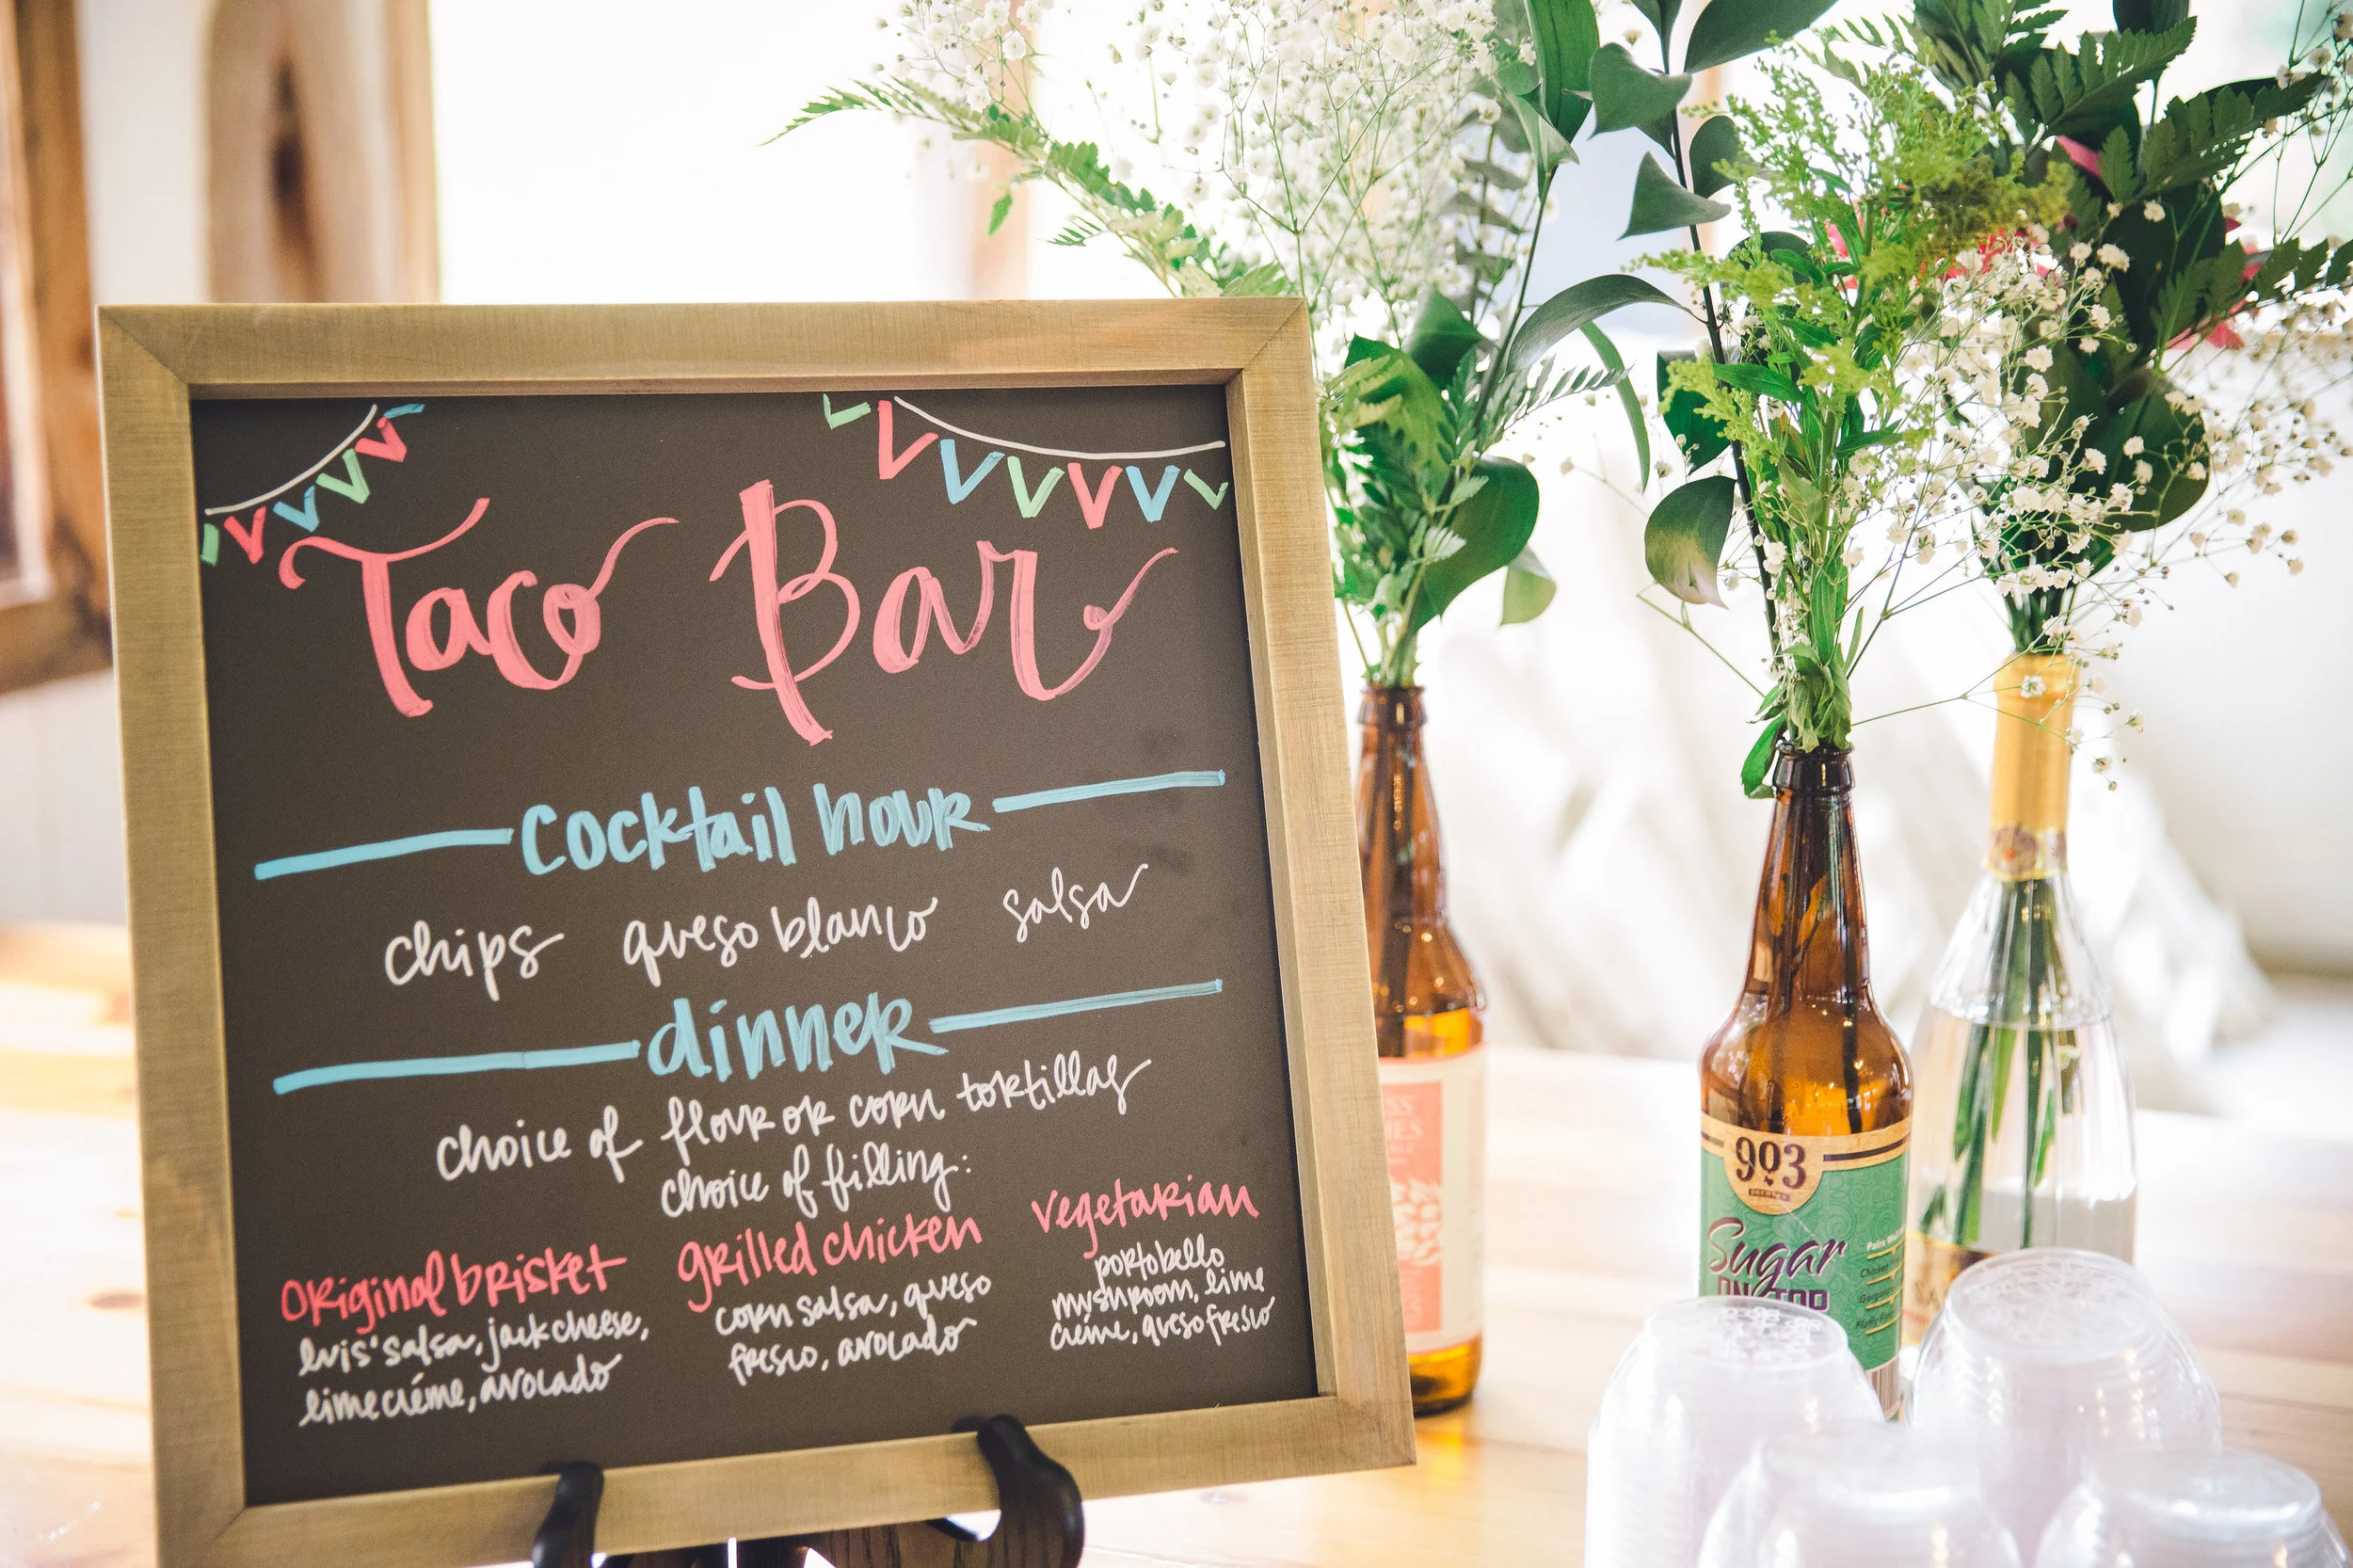 Taco Bar
cocktail hour
chips queso blanco salsa
dinner
choice of flour or corn tortillas
choice of filling:
original brisket
luis' salsa, jack cheese,
lime créme, avocado
grilled chicken
corn salsa, queso
fresco, avocado
vegetarian
portobello
mushroom, lime
créme, queso fresco
903
Sugar
ON TOP